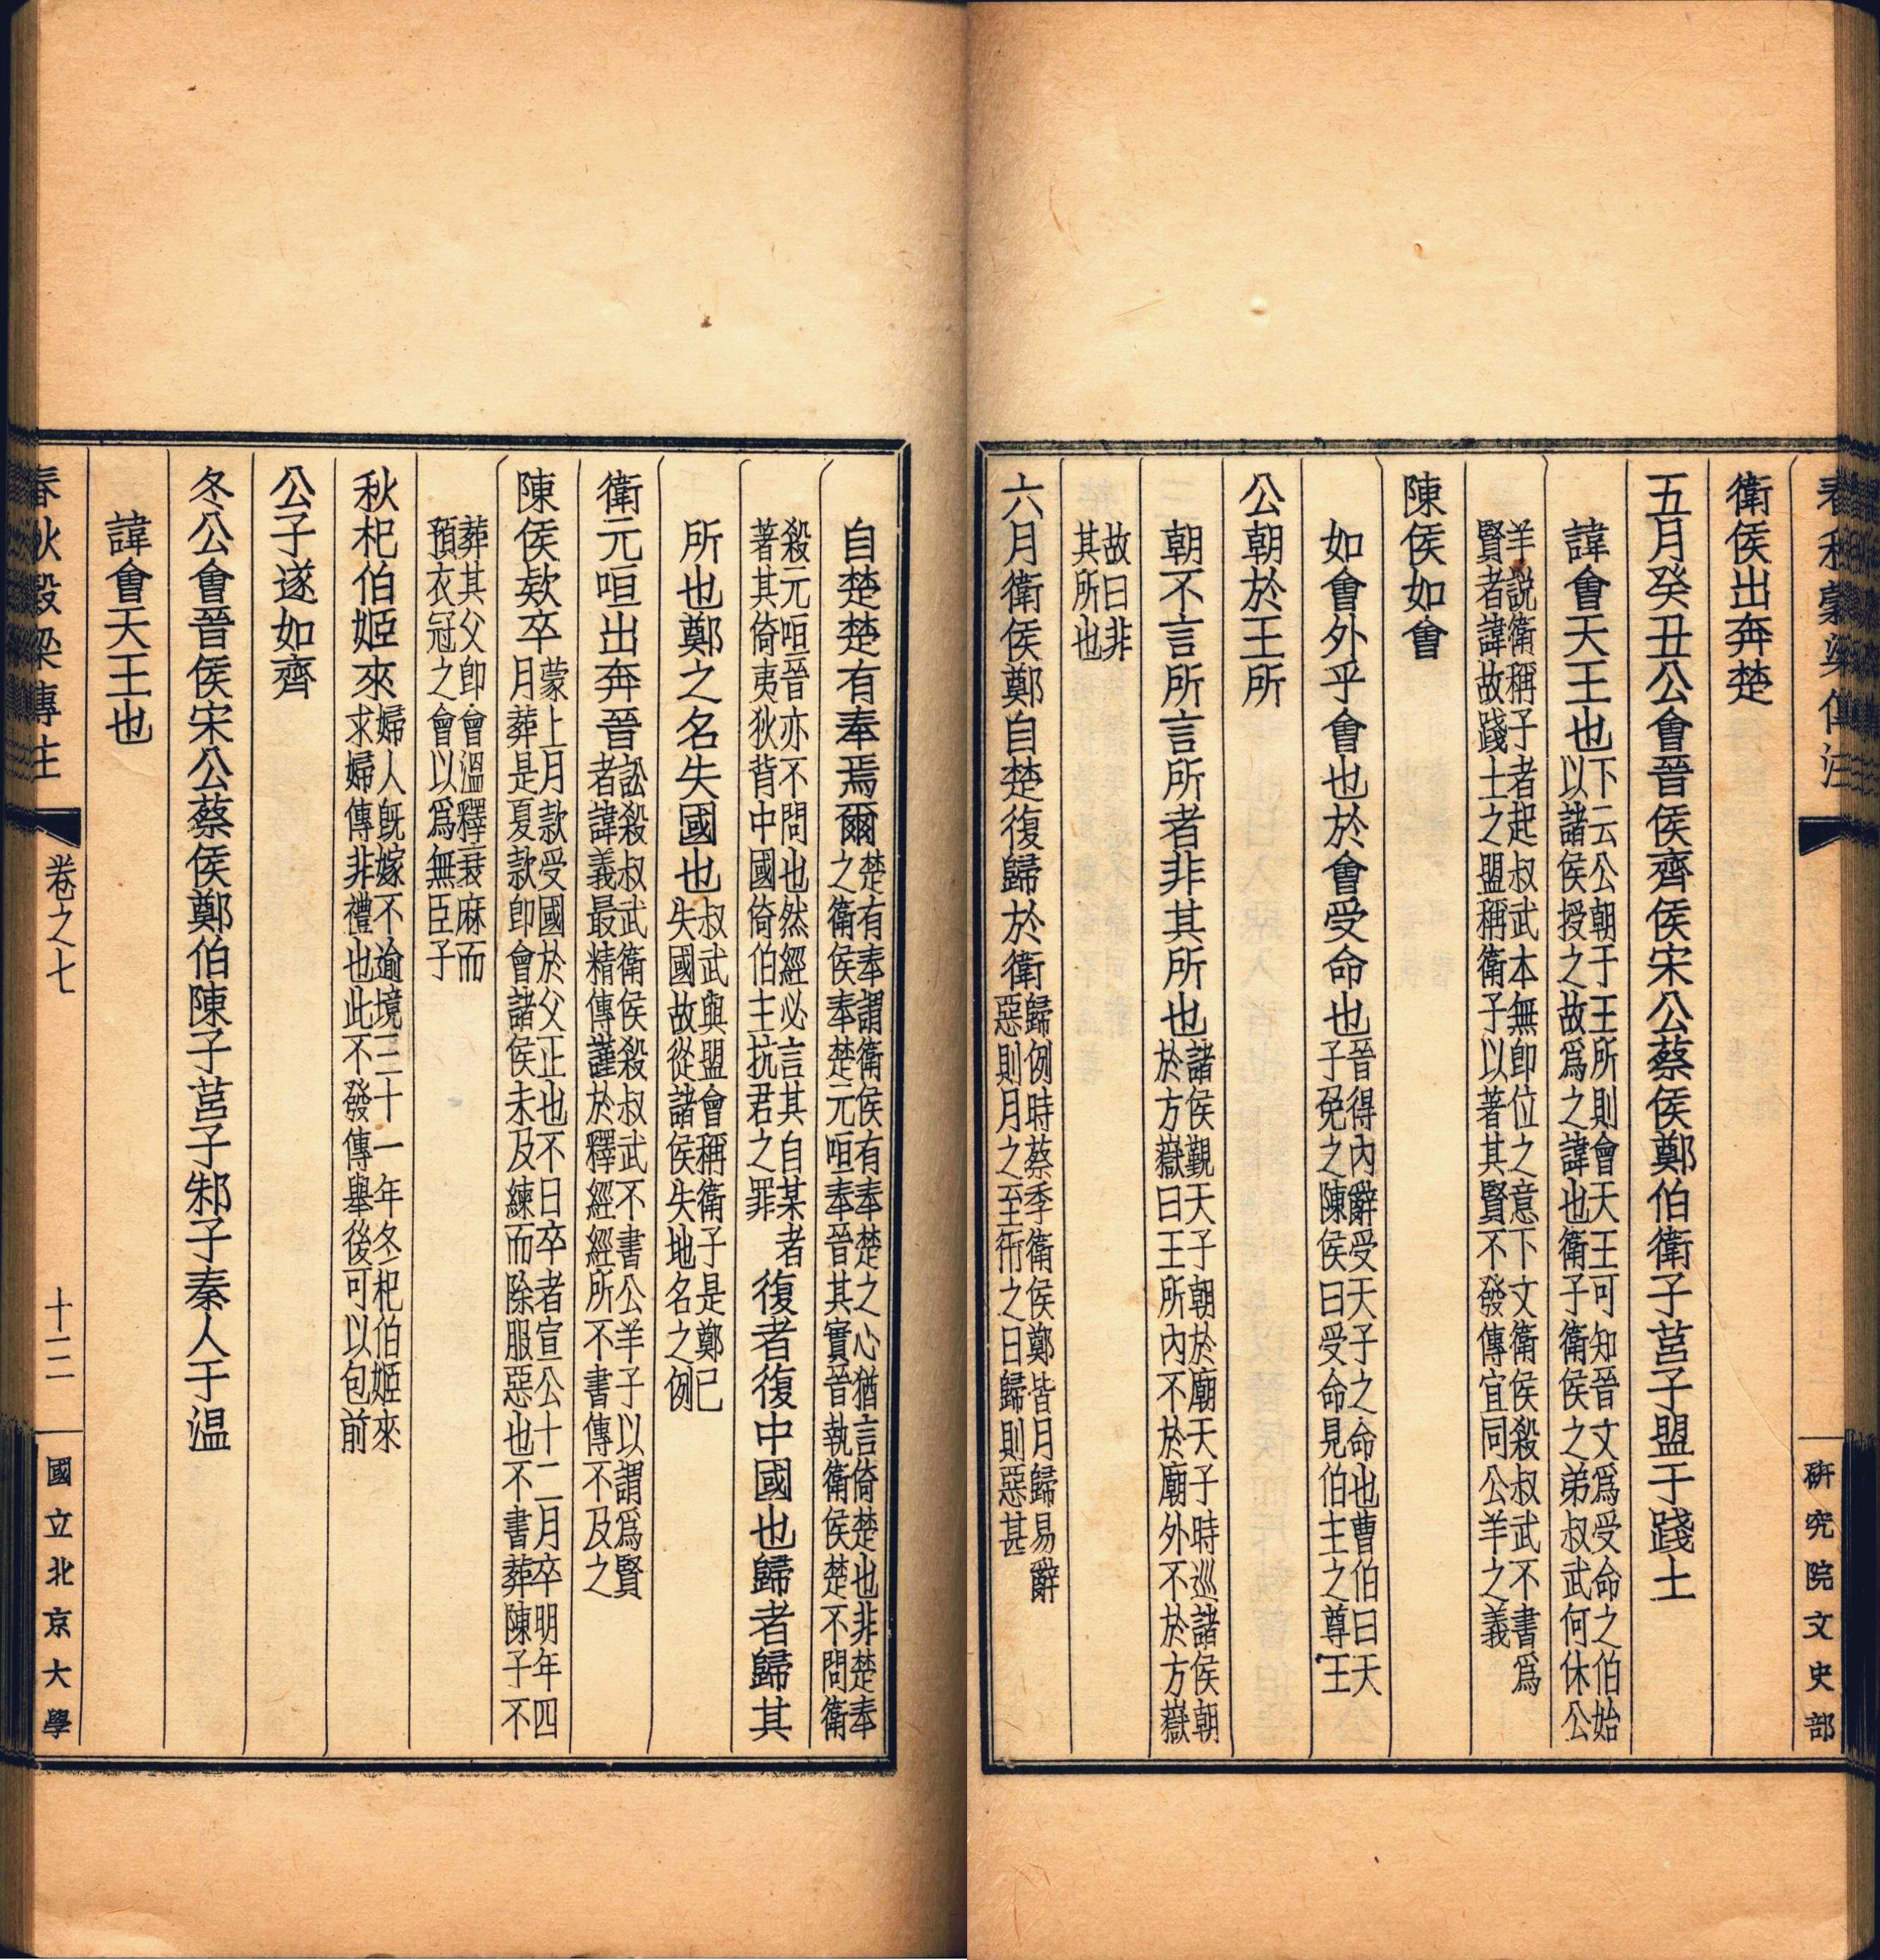 春秋穀梁傳注
研究院文史部
衛侯出奔楚
五月癸丑公會晉侯齊侯宋公蔡侯鄭伯衛子莒子盟于踐土
諱會天王也
下云公朝于王所則會天王可知晉文爲受命之伯始
以諸侯授之故爲之諱也衛子衛侯之弟叔武何休公
羊說衛稱子者起叔武本無即位之意下文衛侯殺叔武不書爲
賢者諱故踐土之盟稱衛子以著其賢不發傳宜同公羊之義
陳侯如會
如會外乎會也於會受命也
晉得內辭受天子之命也曹伯曰天
子免之陳侯曰受命見伯主之尊王
公朝於王所
朝不言所言所者非其所也
諸侯覲天子朝於廟天子時巡諸侯朝
於方嶽曰王所內不於廟外不於方嶽
故曰非
其所也
六月衛侯鄭自楚復歸於衛
歸例時蔡季衛侯鄭皆月歸易辭
惡則月之至衎之日歸則惡甚
自楚楚有奉焉爾
楚有奉謂衛侯有奉楚之心猶言倚楚也非楚奉
之衛侯奉楚元咺奉晉其實晉執衛侯楚不問衛
殺元咺晉亦不問也然經必言其自某者
著其倚夷狄背中國倚伯主抗君之罪
復者復中國也歸者歸其
所也鄭之名失國也
叔武與盟會稱衛子是鄭已
失國故從諸侯失地名之例
衛元咺出奔晉
訟殺叔武衛侯殺叔武不書公羊子以謂爲賢
者諱義最精傳謹於釋經經所不書傳不及之
陳侯款卒
蒙上月款受國於父正也不日卒者宣公十二月卒明年四
月葬是夏款卽會諸侯未及練而除服惡也不書葬陳子不
葬其父卽會溫釋衰麻而
預衣冠之會以爲無臣子
秋杞伯姬來
婦人旣嫁不逾境三十一年冬杞伯姬來
求婦傳非禮也此不發傳舉後可以包前
公子遂如齊
冬公會晉侯宋公蔡侯鄭伯陳子莒子邾子秦人于温
諱會天王也
春秋穀梁傳注
卷之七
十二
國立北京大學